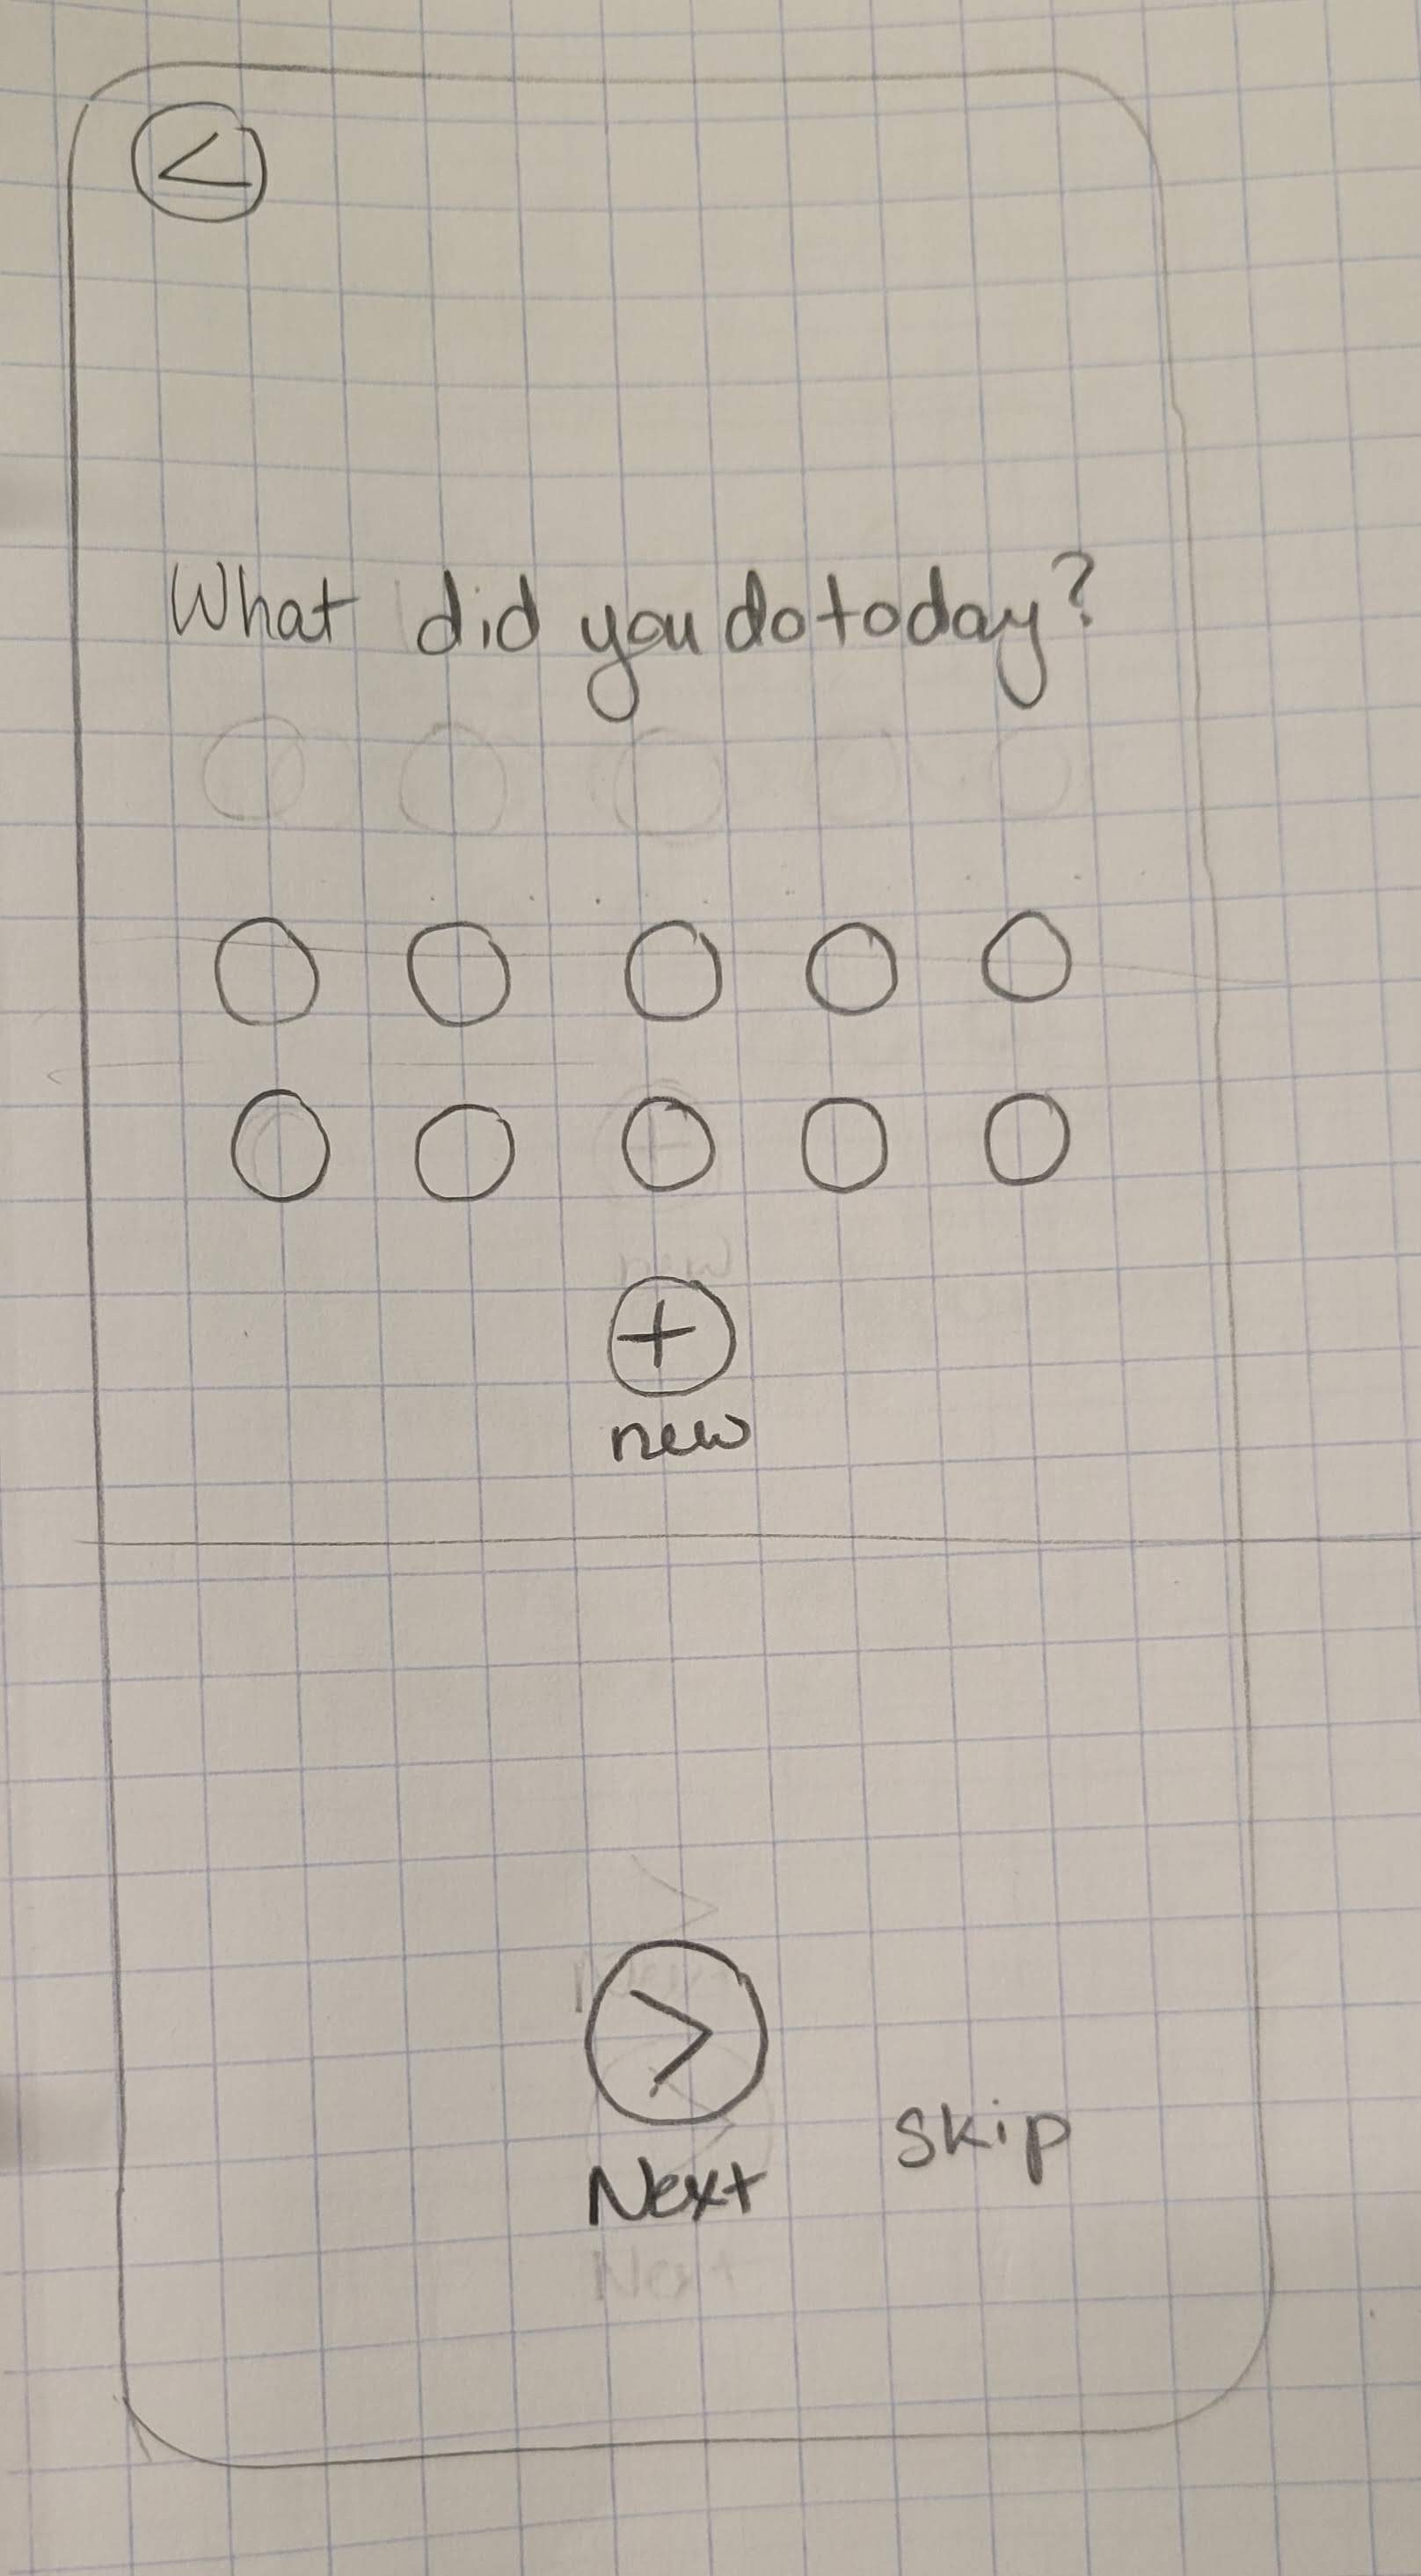 <
What did you do today?
+
new
>
Next
skip